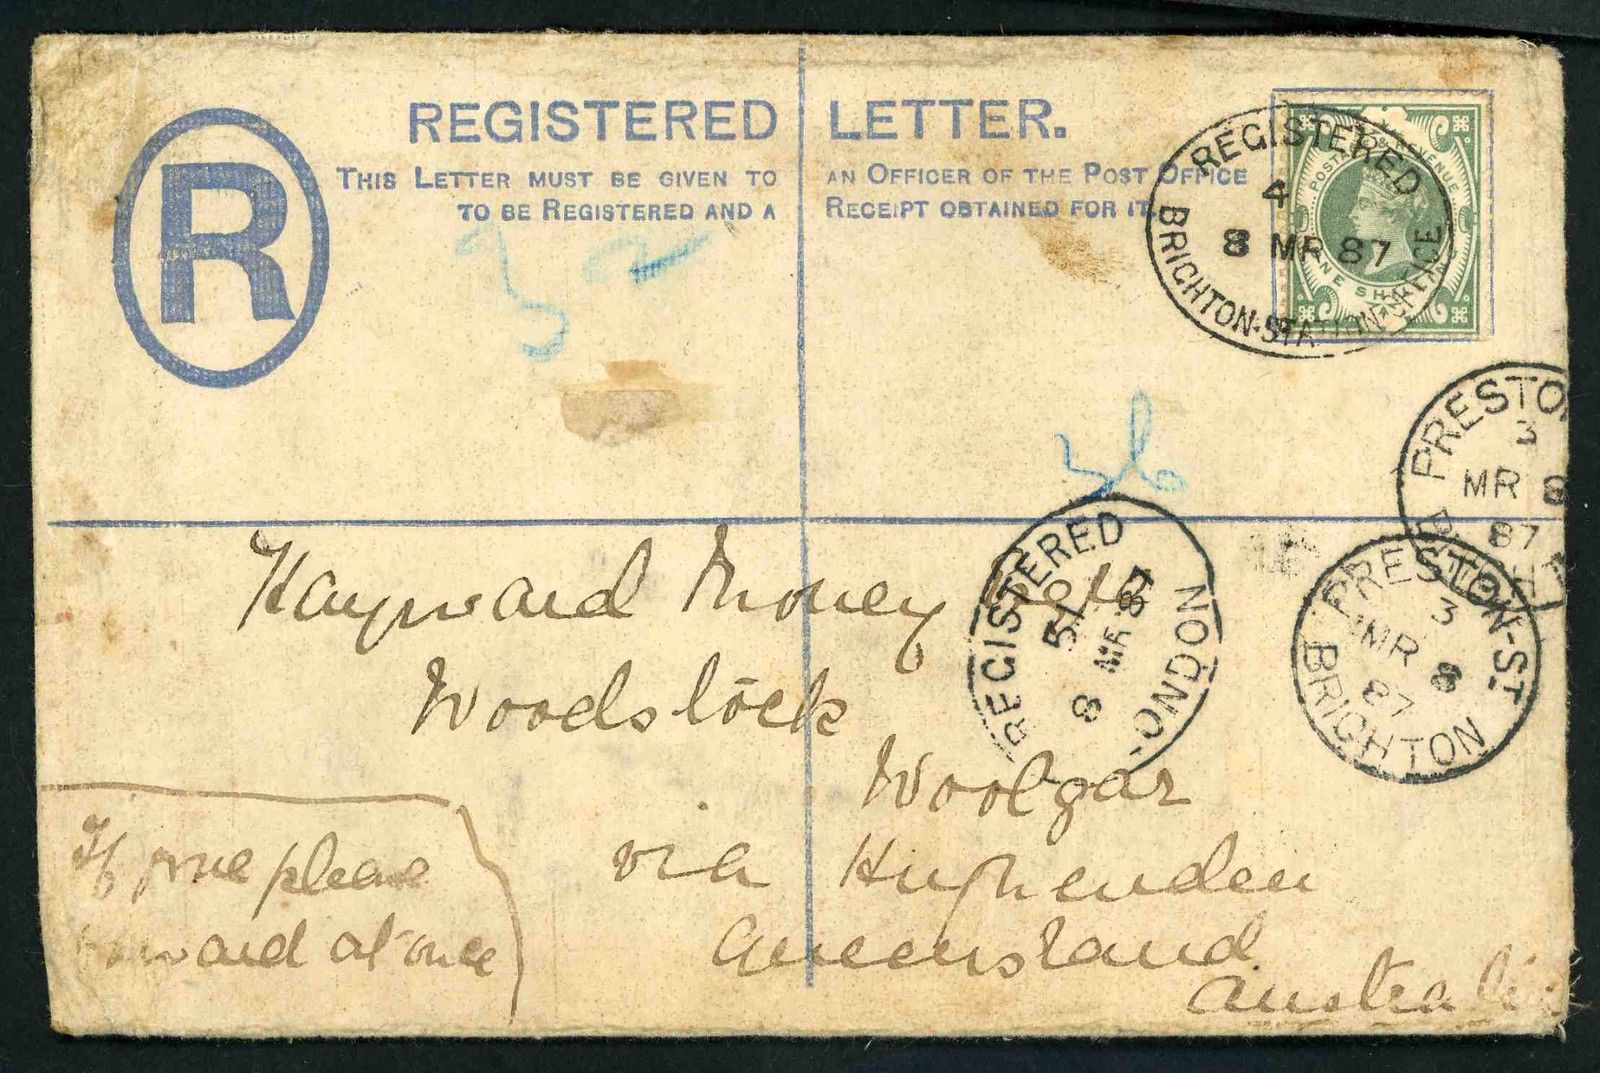 REGISTERED LETTER.
THIS LETTER MUST BE GIVEN TO AN OFFICER OF THE POST OFFICE
TO BE REGISTERED AND A RECEIPT OBTAINED FOR IT
R
POSTAGE & REVENUE
ONE SHILLING
REGISTERED
4
8 MR 87
BRIGHTON-STATION-OFFICE
PRESTON
3
MR 8
87
REGISTERED
51
8 MR 87
LONDON
PRESTON-ST
3
MR 8
87
BRIGHTON
Hayward Money
Woodstock
Woolgar
via Hughenden
Queensland
Australia
If gone please
forward at once